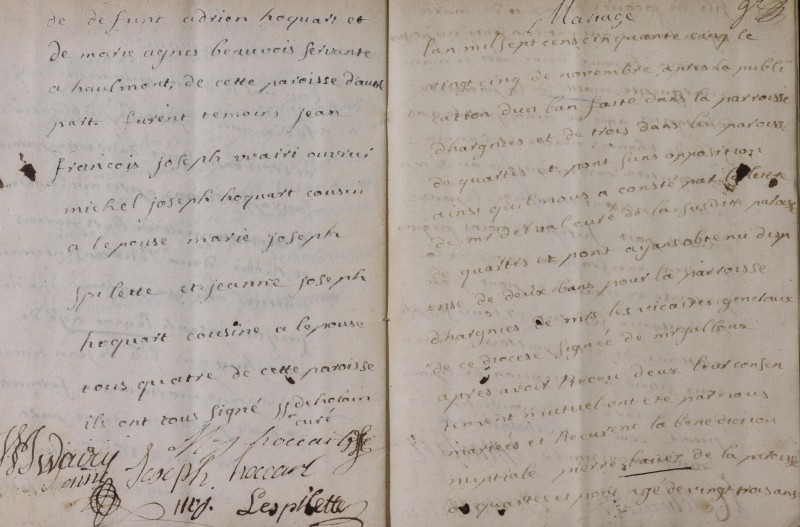 de defunt adrien hoquart et
de marie agnes beauvois servante
a haulmont, de cette paroisse d'autre
part furent temoins jean
francois joseph wairi ouvrier
michel joseph hoquart cousin
a lepouse marie joseph
spilette et jeanne joseph
hoquart cousine a lepouse
tous quatre de cette paroisse
ils ont tous signé
curé
Joseph hoccart
Lespilette
Mariage
lan mil sept cens cinquante cinq le
vingt cinq de novembre, apres la publi
cation dun ban faite dans la parroisse
dhargnies et de trois dans la paroisse
de quartes et pont sans opposition
ainsi quil nous a consté par la lettre
de mr derval curé de la susditte paroisse
de quartes et pont ayans obtenu disp
ense de deux bans pour la parroisse
dhargnies de mrs les vicaires generaux
de ce diocese signée de mr fallons
apres avoir Recou deux leur consen
tement mutuel ont eté par nous
mariées et Recurent la benediction
nuptiale pierre bauez de la paroisse
de quartes et pont agé de vingt trois ans